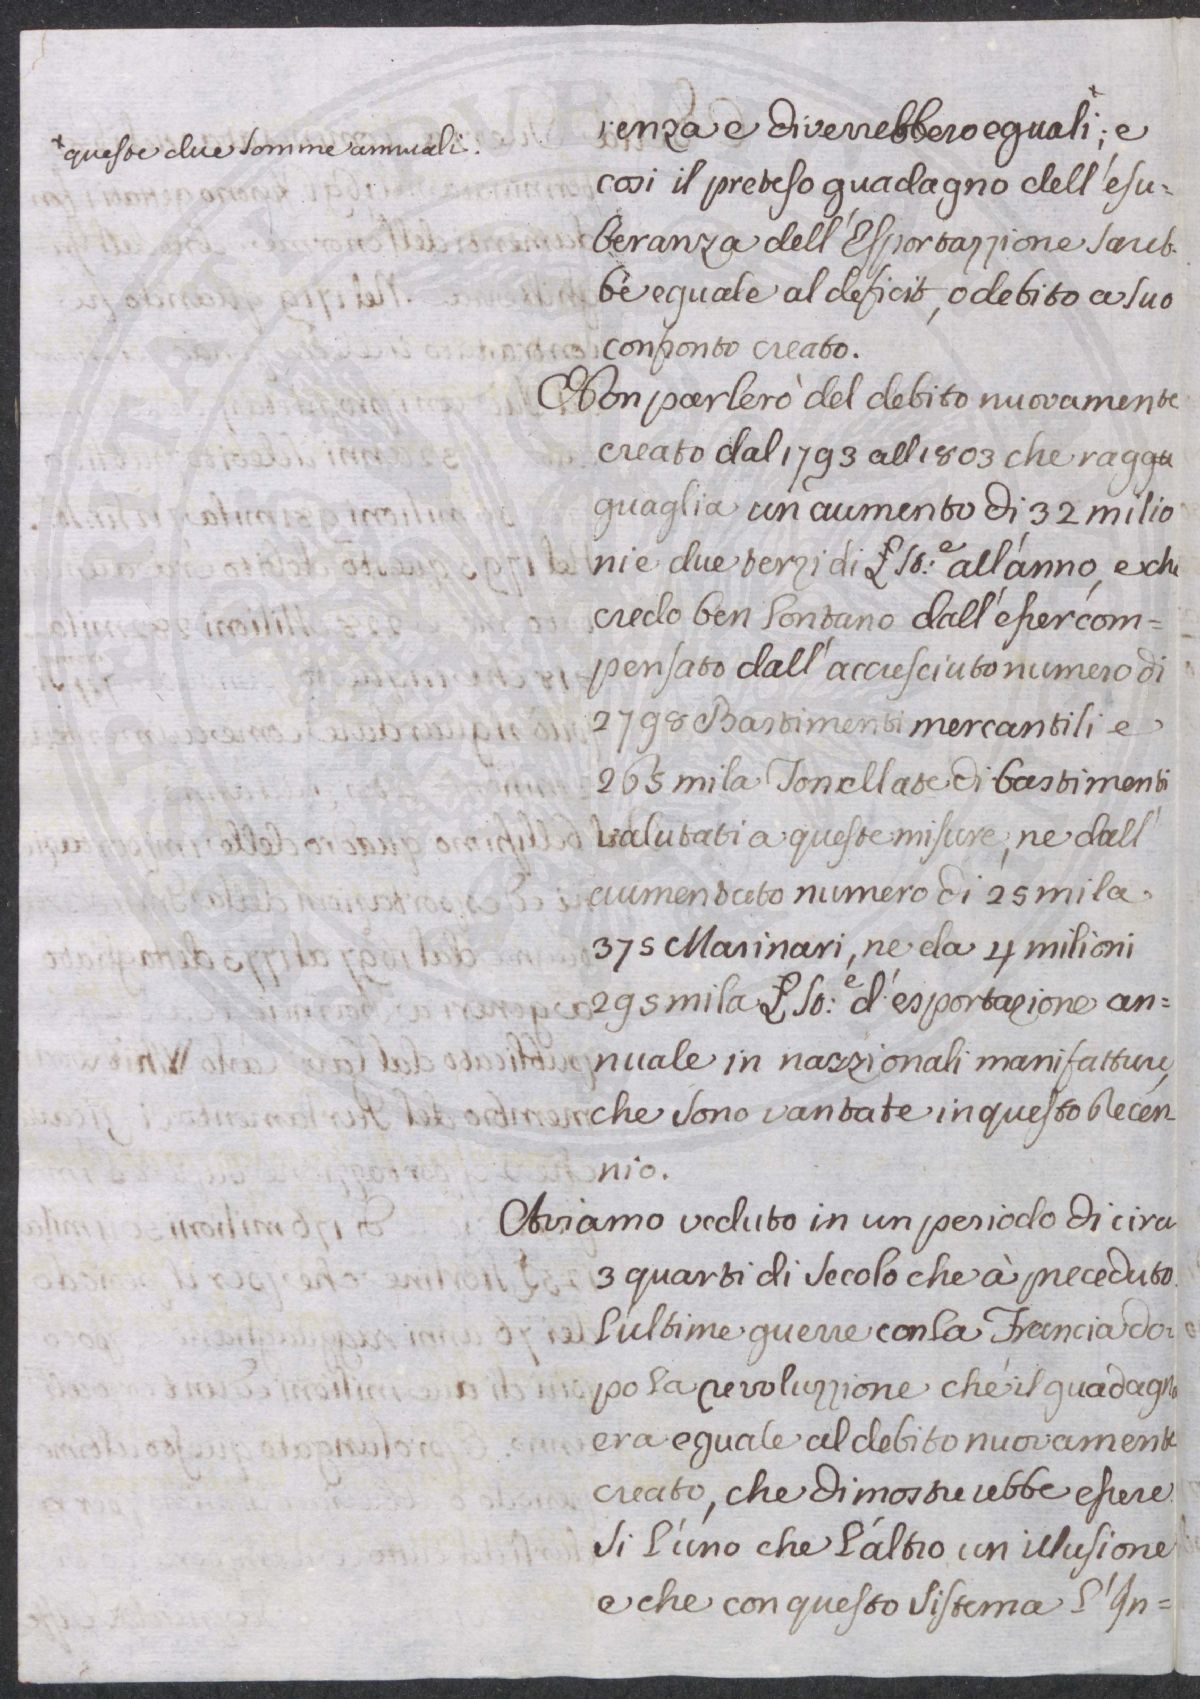 renza e diverrebbero eguali ;ˣ e
ˣ queste due somme annuali.
cosi il preteso guadagno dell'esu=
beranza dell'Esportazzione sareb-
be eguale al deficit, o debito a suo
confronto creato.
Non parlerò del debito nuovamente
creato dal 1793 all 1803 che raggu
guaglia un aumento di 32 milio
ni e due terzi di £ St:ᵉ all'anno, e che
credo ben lontano dall'esser com=
pensato dall'accresciuto numero di
2798 Bastimenti mercantili e
265 mila Tonellate di bastimenti
valutati a queste misure, ne dall'
aumentato numero di 25 mila
375 Marinari, ne da 4 milioni
295 mila £ St:ᵉ d'esportazione an=
nuale in nazzionali manifatture,
che sono vantate in questo Decen-
nio.
Aviamo veduto in un periodo di circa
3 quarti di secolo che à preceduto
l'ultime guerre con la Francia do=
po la revoluzzione che il guadagno
era eguale al debito nuovamente
creato, che dimostrerebbe essere
si l'uno che l'altro un illusione
e che con questo sistema l'In=